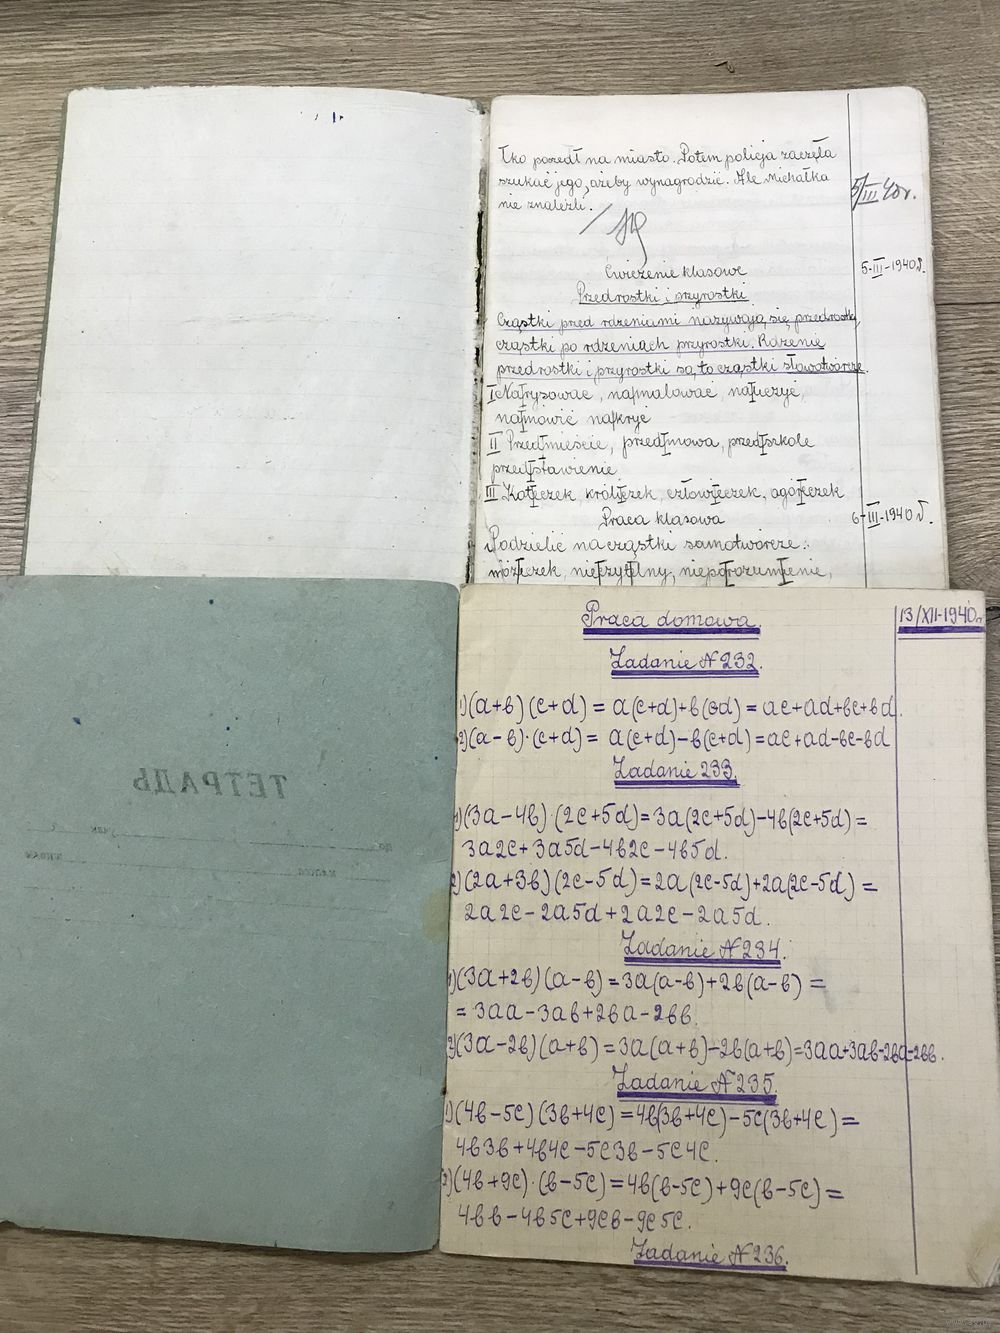 tko poszedł na miasto. Potem policja zaczęła
szukać jego, ażeby wynagrodzić. Ale Michałka
nie znaleźli.
5/III 40r.
Ćwiczenie klasowe
5-III-1940r.
Przedrostki i przyrostki
Cząstki przed rdzeniami nazywają się przedrostki,
cząstki po rdzeniach przyrostki. Rdzenie
przedrostki i przyrostki są to cząstki słowotwórcze.
I Narysować, namalować, nauczyć,
namówić nakryć
II Przedmieście, przedmowa, przedszkole
przedstawienie
III Koteczek, króliczek, człowieczek, ogóreczek
Praca klasowa
6-III-1940 r.
Podzielić na cząstki samotworcze:
wózeczek, nieżyczylny, nieporozumienie,
Praca domowa.
13/XII-1940r
Zadanie N 232.
1)(a+b)(c+d) = a(c+d)+b(cd) = ac+ad+bc+bd.
2)(a-b)·(c+d) = a(c+d)-b(c+d)=ac+ad-bc-bd
Zadanie 233.
1)(3a-4b)·(2c+5d)=3a(2c+5d)-4b(2c+5d)=
3a2c+3a5d-4b2c-4b5d.
2)(2a+3b)(2c-5d)=2a(2c-5d)+2a(2c-5d)=
2a2c-2a5d+2a2c-2a5d.
Zadanie N 234.
1)(3a+2b)(a-b)=3a(a-b)+2b(a-b)=
=3aa-3ab+2ba-2bb.
2)(3a-2b)(a+b)=3a(a+b)-2b(a+b)=3aa+3ab-2ba-2bb.
Zadanie N 235.
1)(4b-5c)(3b+4c)=4b(3b+4c)-5c(3b+4c)=
4b3b+4b4c-5c3b-5c4c.
2)(4b+9c)·(b-5c)=4b(b-5c)+9c(b-5c)=
4bb-4b5c+9cb-9c5c.
Zadanie N 236.
ТЕТРАДЬ
по
учен
класса
школы